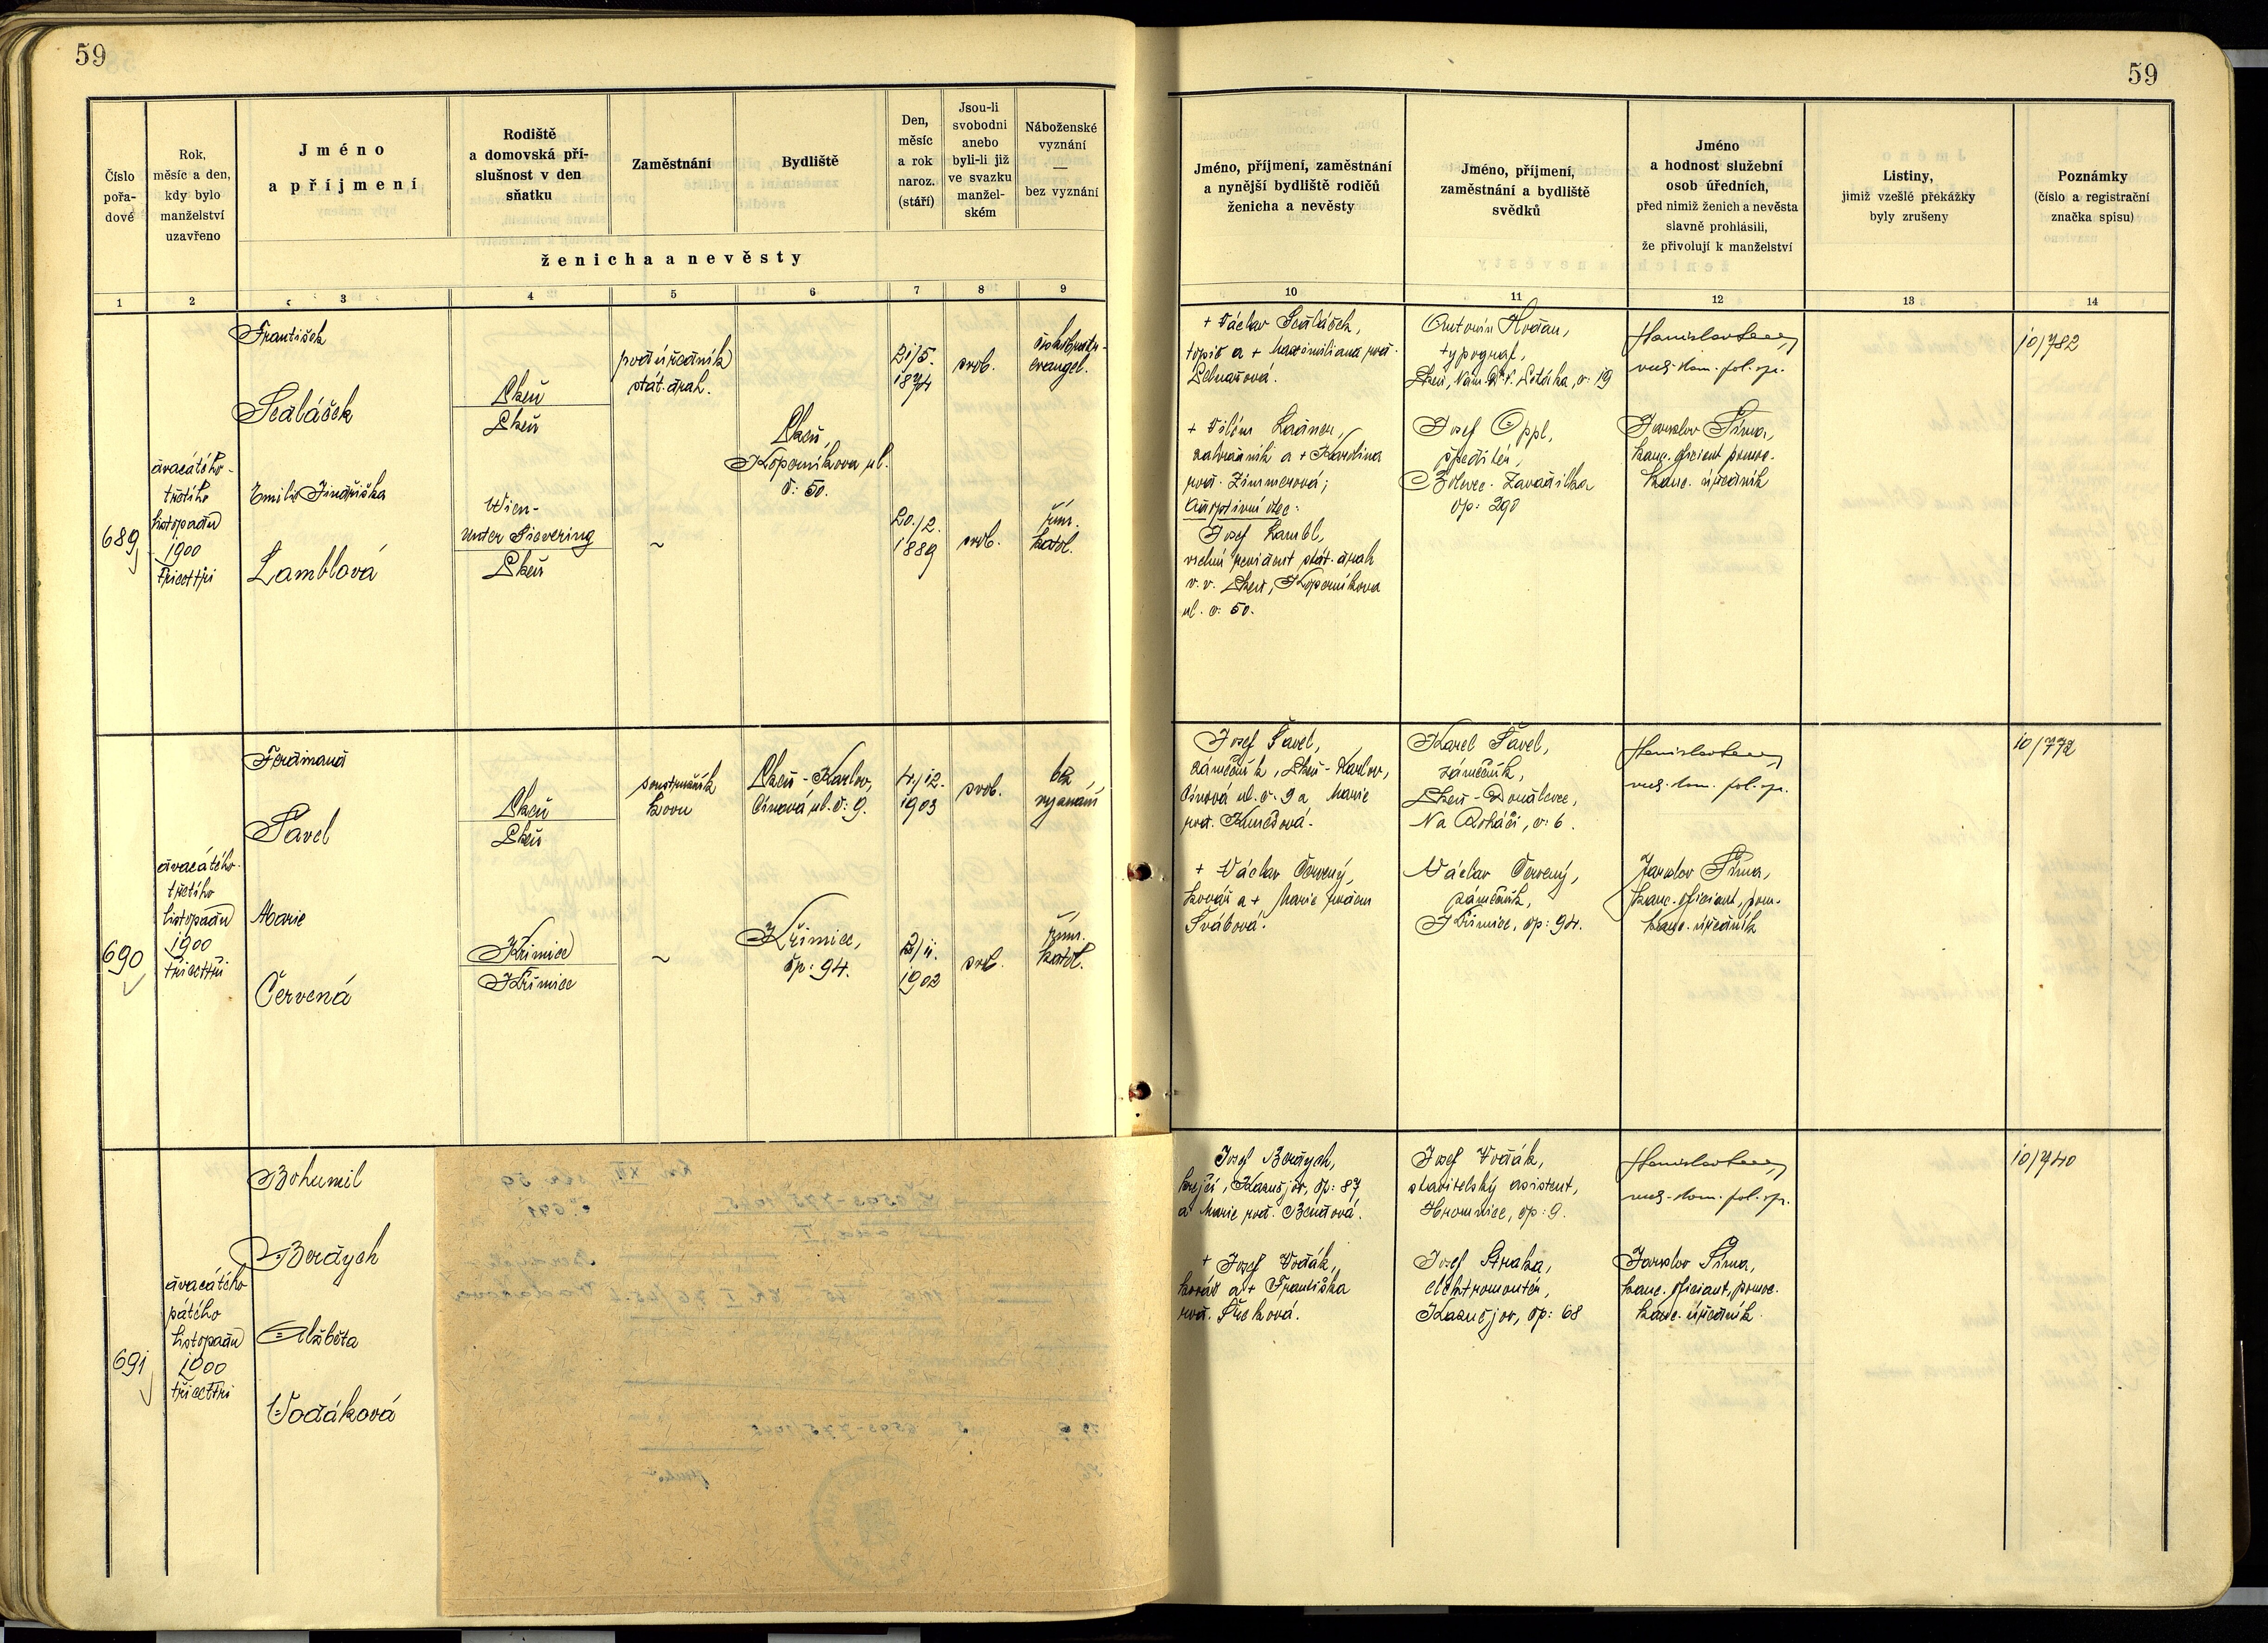 59
59
Číslo
pořa-
dové
Rok,
měsíc a den,
kdy bylo
manželství
uzavřeno
Jméno
a příjmení
Rodiště
a domovská pří-
slušnost v den
sňatku
Zaměstnání
Bydliště
Den,
měsíc
a rok
naroz.
(stáří)
Jsou-li
svobodni
anebo
byli-li již
ve svazku
manžel-
ském
Náboženské
vyznání
—
bez vyznání
ženicha a nevěsty
Jméno, příjmení, zaměstnání
a nynější bydliště rodičů
ženicha a nevěsty
Jméno, příjmení,
zaměstnání a bydliště
svědků
Jméno
a hodnost služební
osob úředních,
před nimiž ženich a nevěsta
slavně prohlásili,
že přivolují k manželství
Listiny,
jimiž vzešlé překážky
byly zrušeny
Poznámky
(číslo a registrační
značka spisu)
1 2 3 4 5 6 7 8 9
10 11 12 13 14
689
dvacátého-
třetího
listopadu
1900
třicettři
František
Sedláček
Emilie Jindřiška
Lamblová
Plzeň
Plzeň
Wien-
Unter Sievering
Plzeň
podúředník
stát. drah.
~
Plzeň,
Koperníkova ul.
č: 50.
21/5.
1874
20./2.
1889
svob.
svob.
českobratr.
evangel.
řím.
katol.
+ Václav Sedláček,
topič a + Maximiliana rod.
+ Vilém
zahradník a + Karolina
rod. Zimmerová;
Adoptivní otec:
Josef Lambl,
vrchní revident stát. drah
v. v. Plzeň, Koperníkova
ul. č: 50.
Antonín Hodan,
typograf,
Josef Oppl,
špeditér,
Bolevec-Zavadilka
čp: 290
Jaroslav Šíma,
kanc. oficiant pomoc.
kanc. úředník
10/782
690
dvacátého-
třetího
listopadu
1900
třicettři
Ferdinand
Pavel
Marie
Červená
Plzeň
Plzeň
Křimice
Křimice
soustružník
kovu
~
Plzeň-Karlov,
Cínová ul. č: 9.
Křimice,
čp: 94.
4./12.
1903
2/11.
1902
svob.
svob.
bez
vyznání
řím.
katol.
Josef Pavel,
zámečník, Plzeň-Karlov,
Cínová ul. č. 9 a Marie
+ Václav Červený,
kovář a + Marie rodem
Švábová.
Karel Pavel,
zámečník,
Plzeň-Doudlevce,
Václav Červený,
zámečník,
Křimice, čp: 94.
Jaroslav Šíma,
kanc. oficiant, pom.
kanc. úředník
10/772
691
dvacátého
pátého
listopadu
1900
třicettři
Bohumil
Berdych
Alžběta
Vodáková
Josef Berdych,
krejčí, Kaznějov, čp: 87
a Marie rod. Bendová.
+ Josef Vodák,
kovář a + Františka
Josef Vodák,
stavitelský asistent,
Hromnice, čp: 9.
Josef Straka,
elektromontér,
Kaznějov, čp: 68
Jaroslav Šíma,
kanc. oficiant, pomoc.
kanc. úředník
10/740